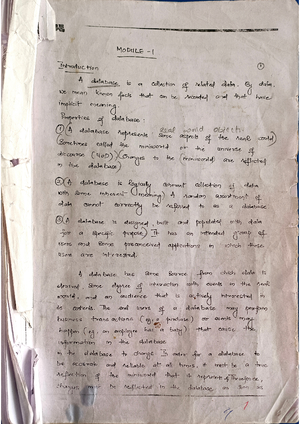 MODULE - 1
①
Introduction
A database, is a collection of related data. By data
we mean known facts that can be recorded and that have
implicit meaning.
Properties of database:
① A database represents some aspects of the real world
real world objects
(Sometimes called the miniworld or the universe of
discourse (UoD)) (changes to the (miniworld) are reflected
in the database)
② (A database is logically coherent collection of data
with some inherent meaning) A random assortment of
data cannot correctly be referred to as a database
③ (A database is designed, built and populated with data
for a specific purpose) It has an intended group of
users and some preconceived applications in which these
users are interested.
A database has some source from which data is
derived some degree of interaction with events in the real
world, and an audience that is actively interested in
its contents. The end users of a database may perform
business transactions (eg, a purchase) or events may
happen (eg, an employee has a baby) that cause the
information in the database
in the database to change In order for a database to
be accurate and reliable at all times, it must be a true
reflection of the miniworld that it represents therefore,
changes must be reflected in the database as soon as